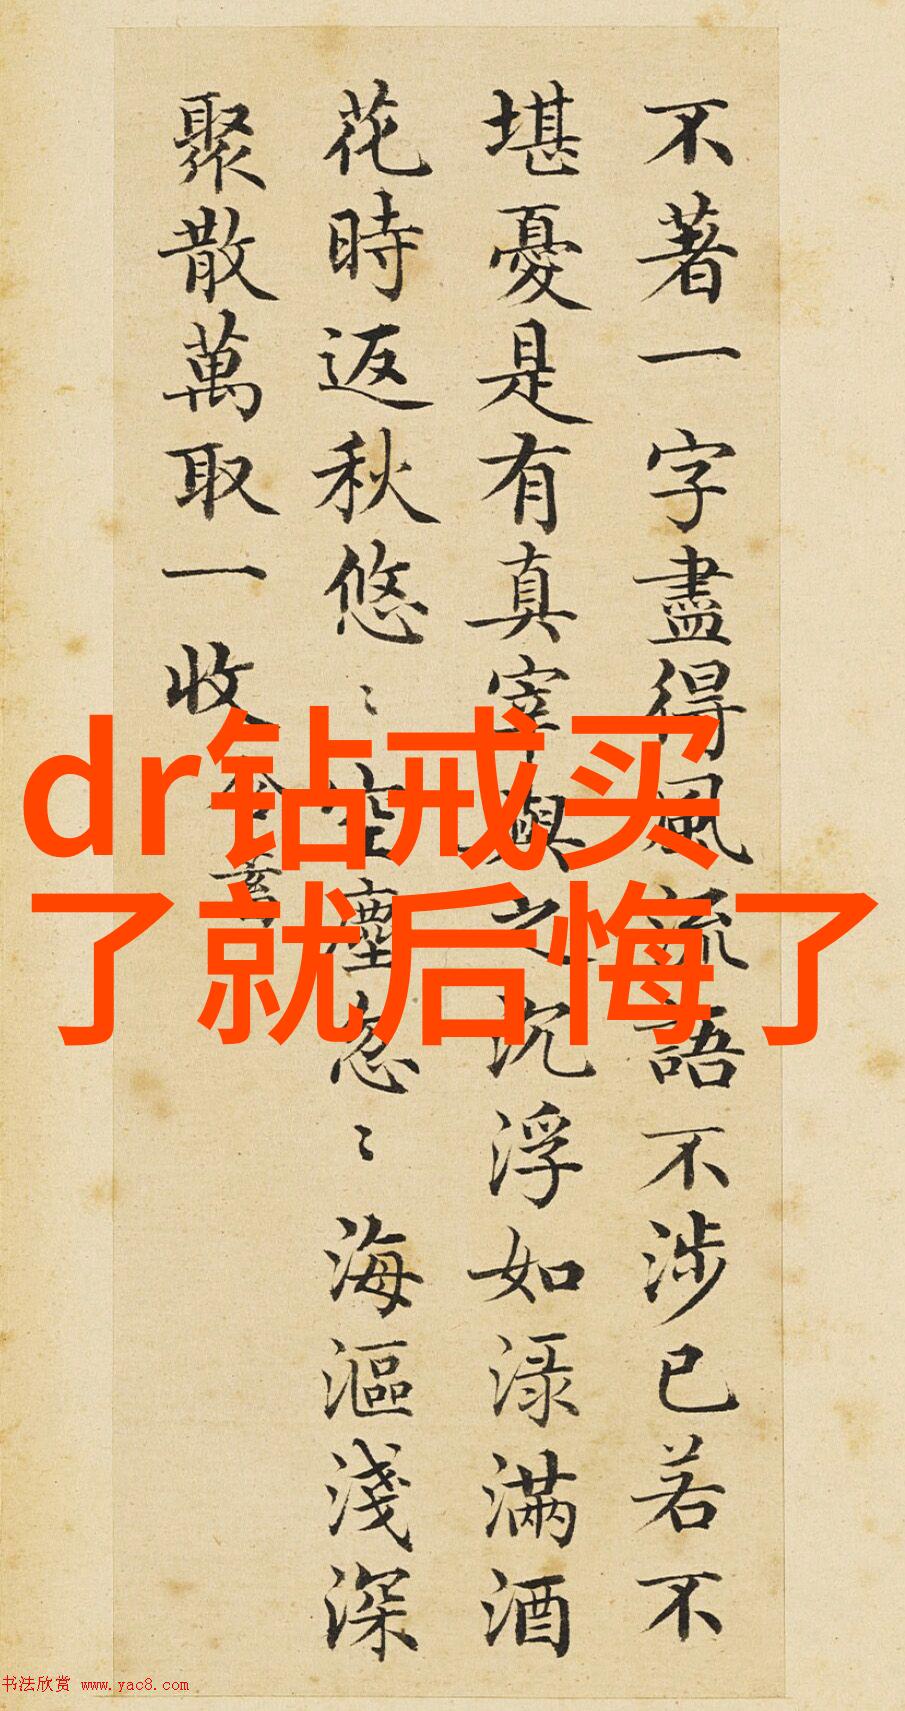 不著一字盡得風流語不涉已若不
堪憂是有真宰與之沉浮如淥滿酒
花時返秋悠〻空塵忽〻海漚淺深
聚散萬取一收
dr钻戒买
了就后悔了
书法欣赏 www.yac8.com